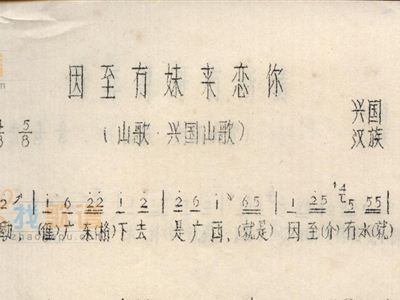 因至有妹来恋你
(山歌·兴国山歌)
兴国
汉族
5/8
2 | i 6 22 i 2 | 2 6 i 65 | i 25 5 55 |
(隹)广东(格)下去 是广西,(就是) 因至(介)有水(就)